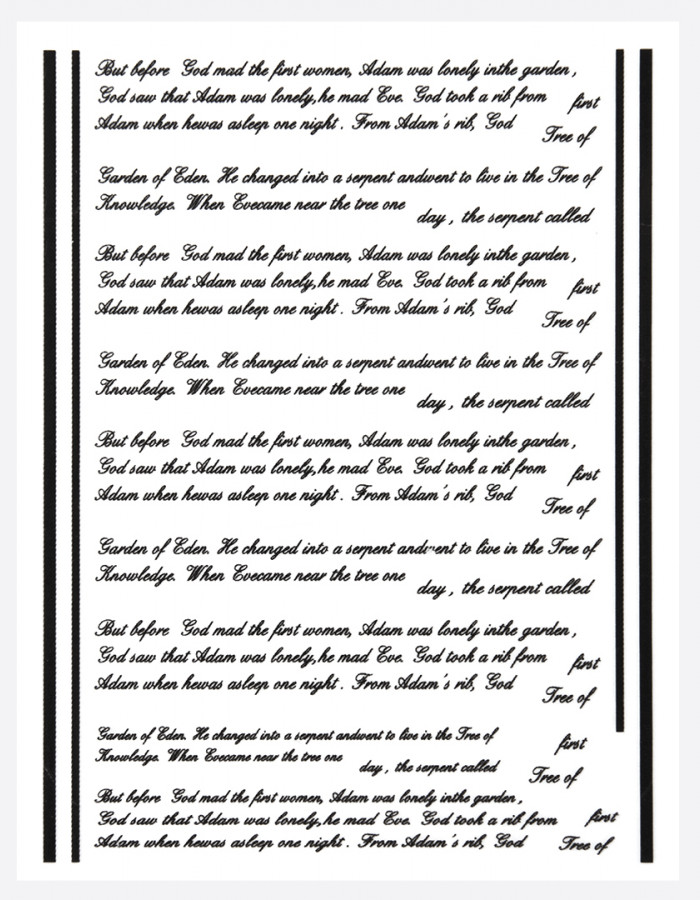 But before God mad the first women, Adam was lonely inthe garden,
God saw that Adam was lonely,he mad Eve. God took a rib from first
Adam when hewas asleep one night. From Adam's rib, God Tree of
Garden of Eden. He changed into a serpent andwent to live in the Tree of
Knowledge. When Evecame near the tree one day, the serpent called
But before God mad the first women, Adam was lonely inthe garden,
God saw that Adam was lonely,he mad Eve. God took a rib from first
Adam when hewas asleep one night. From Adam's rib, God Tree of
Garden of Eden. He changed into a serpent andwent to live in the Tree of
Knowledge. When Evecame near the tree one day, the serpent called
But before God mad the first women, Adam was lonely inthe garden,
God saw that Adam was lonely,he mad Eve. God took a rib from first
Adam when hewas asleep one night. From Adam's rib, God Tree of
Garden of Eden. He changed into a serpent andwent to live in the Tree of
Knowledge. When Evecame near the tree one day, the serpent called
But before God mad the first women, Adam was lonely inthe garden,
God saw that Adam was lonely,he mad Eve. God took a rib from first
Adam when hewas asleep one night. From Adam's rib, God Tree of
Garden of Eden. He changed into a serpent andwent to live in the Tree of first
Knowledge. When Evecame near the tree one day, the serpent called Tree of
But before God mad the first women, Adam was lonely inthe garden,
God saw that Adam was lonely,he mad Eve. God took a rib from first
Adam when hewas asleep one night. From Adam's rib, God Tree of